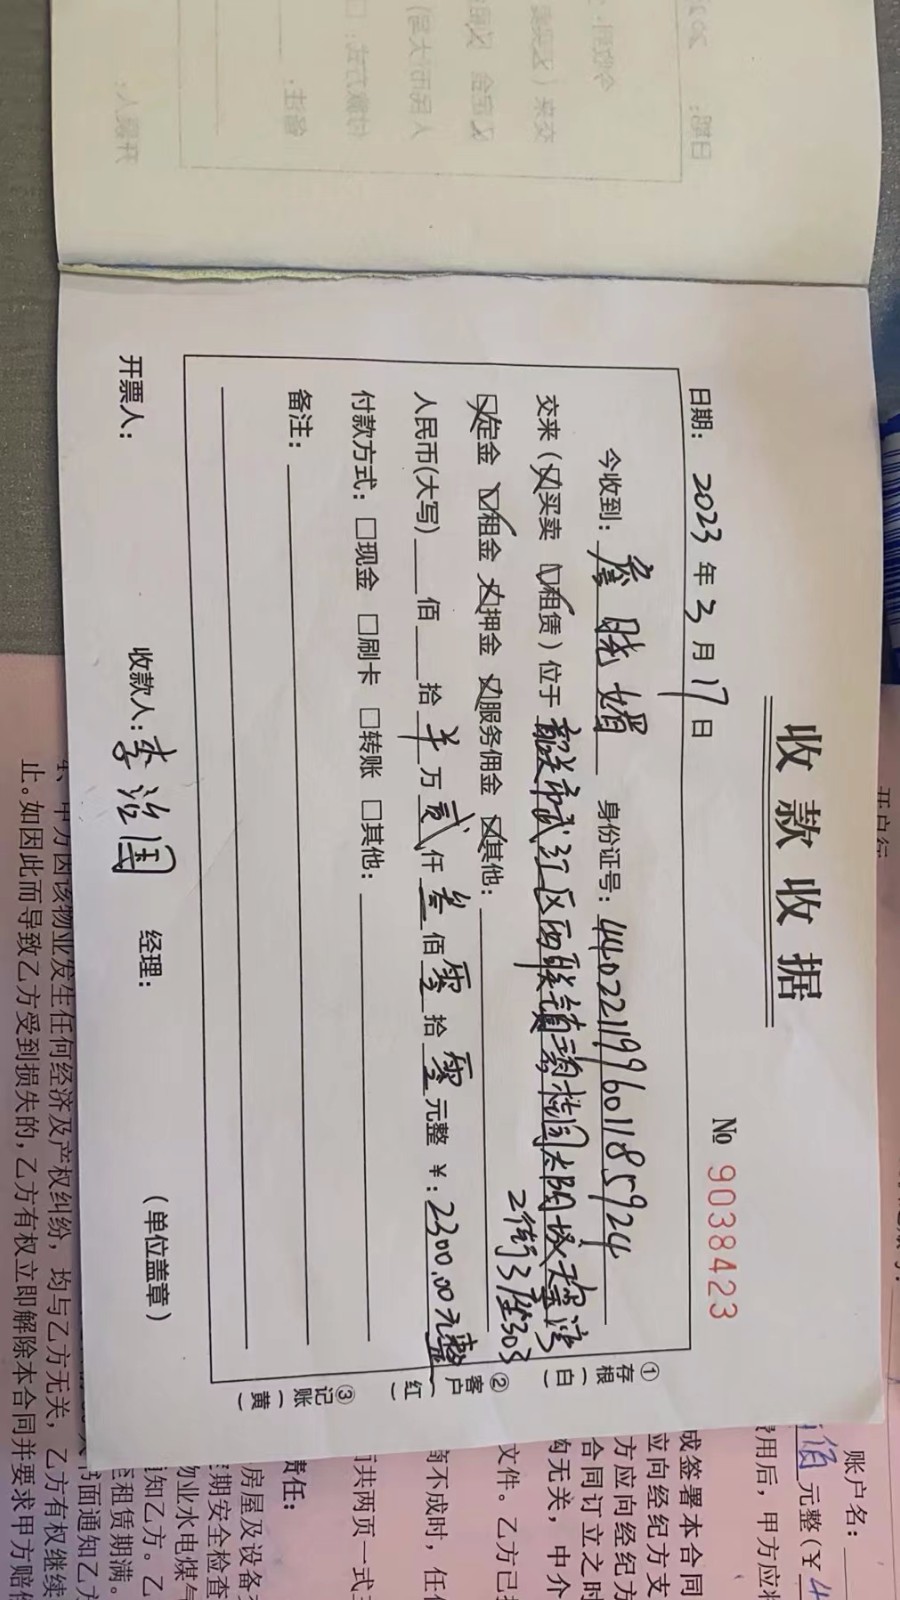 收款收据
№ 9038423
日期：2023年3月17日
今收到：詹晓媚 身份证号：440221199601185924
交来（☒买卖 ☑租赁）位于韶关市武江区西联镇碧桂园太阳城天玺湾
2街3座303
☒定金 ☑租金 ☒押金 ☒服务佣金 ☒其他：
人民币(大写) 佰 拾 万 贰仟 叁佰 零拾 零元整 ¥：2300.00元整
付款方式：□现金 □刷卡 □转账 □其他：
备注：
开票人： 收款人：李治国 经理： （单位盖章）
①存根（白）
②客户（红）
③记账（黄）
账户名：
佰元整(¥4
费用后，甲方应将
成签署本合同
应向经纪方支
方应向经纪方
合同订立之时
构无关，中介
文件。乙方已
商不成时，任
同共两页一式
责任：
房屋及设备
定期安全检查
物业水电煤气
通知乙方。乙
至租赁期满。
书面通知乙方
甲方因该物业发生任何经济及产权纠纷，均与乙方无关，乙方有权继续
止。如因此而导致乙方受到损失的，乙方有权立即解除本合同并要求甲方赔偿